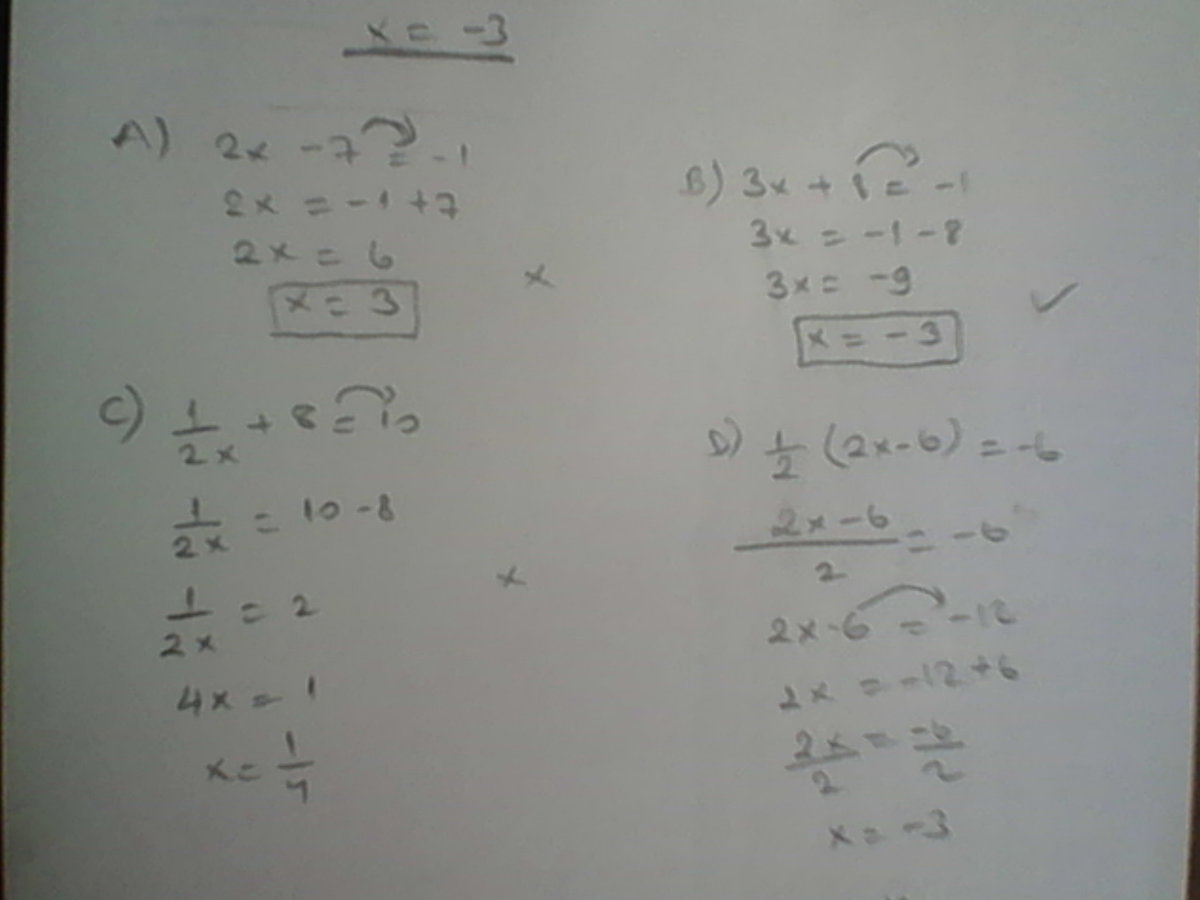 x = -3
A) 2x - 7 = -1
2x = -1 + 7
2x = 6
x = 3
x
B) 3x + 8 = -1
3x = -1 - 8
3x = -9
x = -3
✓
C) 1/2x + 8 = 10
1/2x = 10 - 8
1/2x = 2
4x = 1
x = 1/4
x
D) 1/2 (2x - 6) = -6
2x - 6/2 = -6
2x - 6 = -12
2x = -12 + 6
2x/2 = -6/2
x = -3